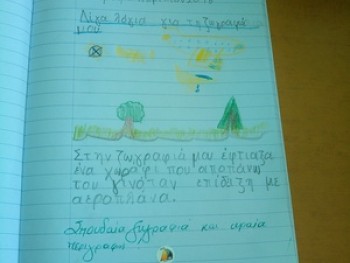 Λίγα λόγια για τη ζωγραφιά
μου
Στην ζωγραφιά μου έφτιαξα
ένα χωράφι που αποπάνω
του γινόταν επίδαξη με
αεροπλάνα.
Σπουδαία ζωγραφιά και ωραία
περιγραφή